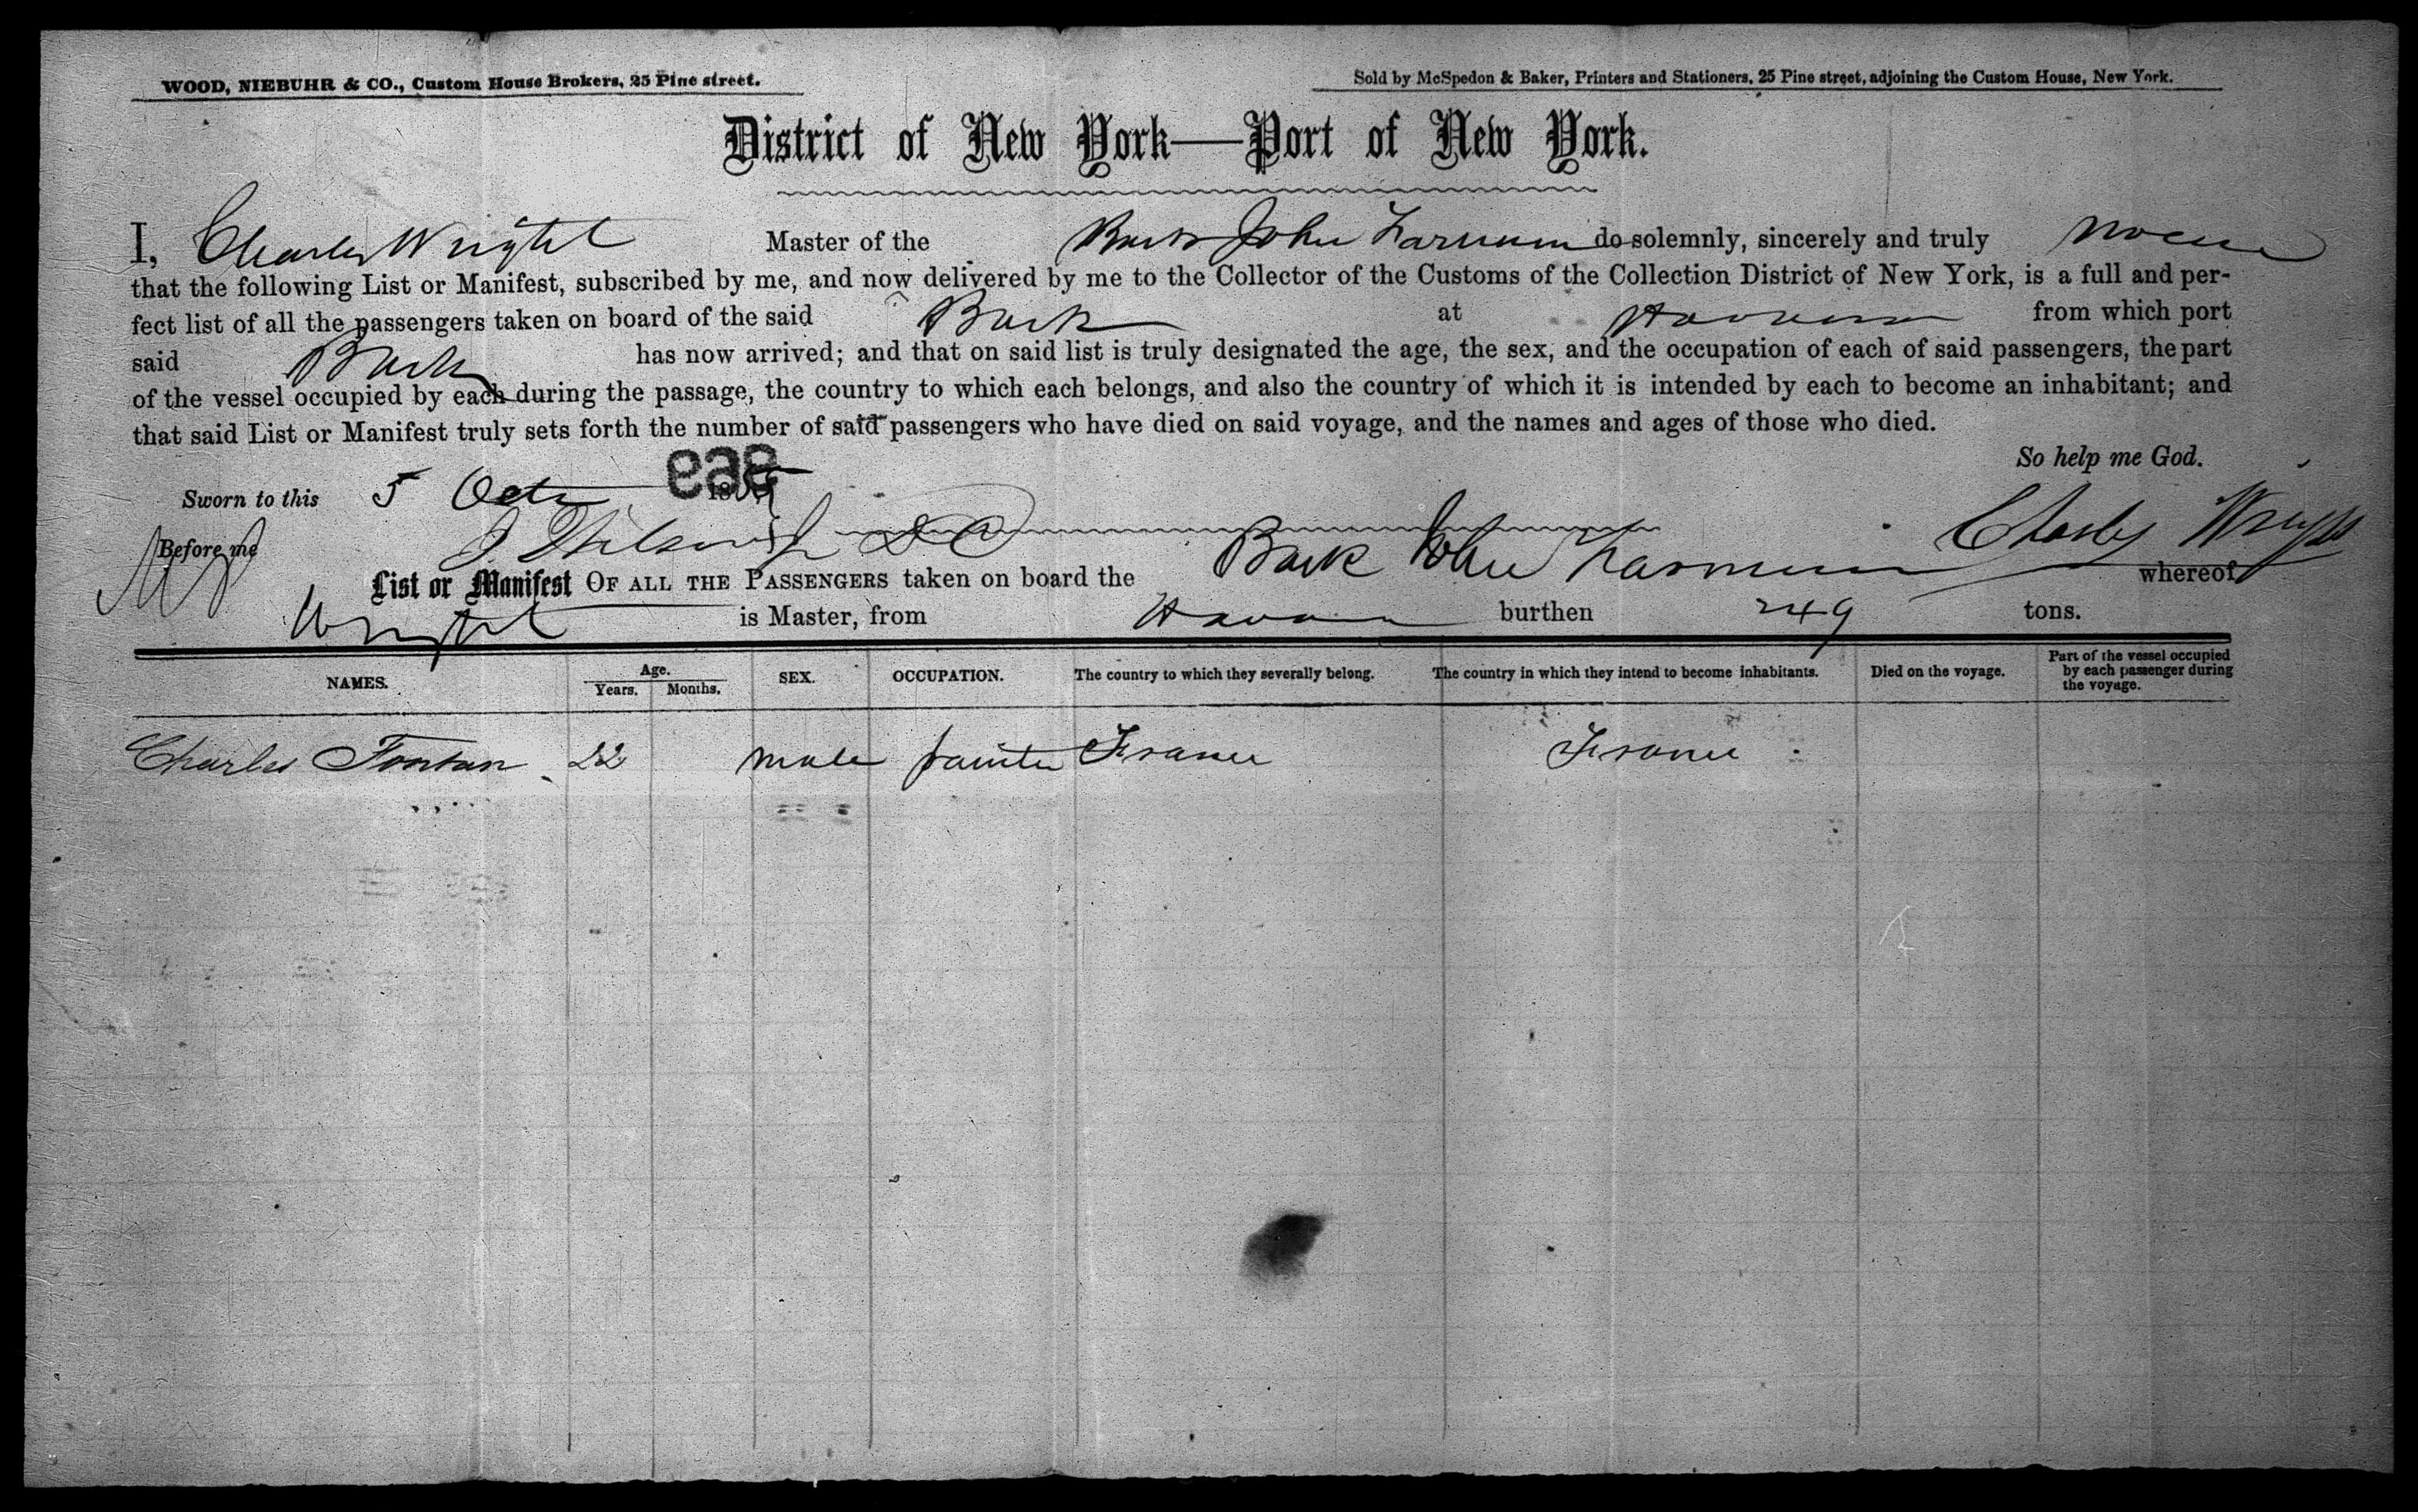 WOOD, NIEBUHR & CO., Custom House Brokers, 25 Pine street.
Sold by McSpedon & Baker, Printers and Stationers, 25 Pine street, adjoining the Custom House, New York.
District of New York—Port of New York.
I, Charles Wright Master of the Bark John Farnum do solemnly, sincerely and truly
that the following List or Manifest, subscribed by me, and now delivered by me to the Collector of the Customs of the Collection District of New York, is a full and per-
fect list of all the passengers taken on board of the said Bark at Havana from which port
said Bark has now arrived; and that on said list is truly designated the age, the sex, and the occupation of each of said passengers, the part
of the vessel occupied by each during the passage, the country to which each belongs, and also the country of which it is intended by each to become an inhabitant; and
that said List or Manifest truly sets forth the number of said passengers who have died on said voyage, and the names and ages of those who died.
So help me God.
Sworn to this 5 Octr 18
Charles Wright
Before me
List or Manifest OF ALL THE PASSENGERS taken on board the Bark John Farnum whereof
Wright is Master, from Havana burthen 249 tons.
NAMES. Age. Years. Months. SEX. OCCUPATION. The country to which they severally belong. The country in which they intend to become inhabitants. Died on the voyage. Part of the vessel occupied by each passenger during the voyage.
Charles Fontan 22 male painter France France